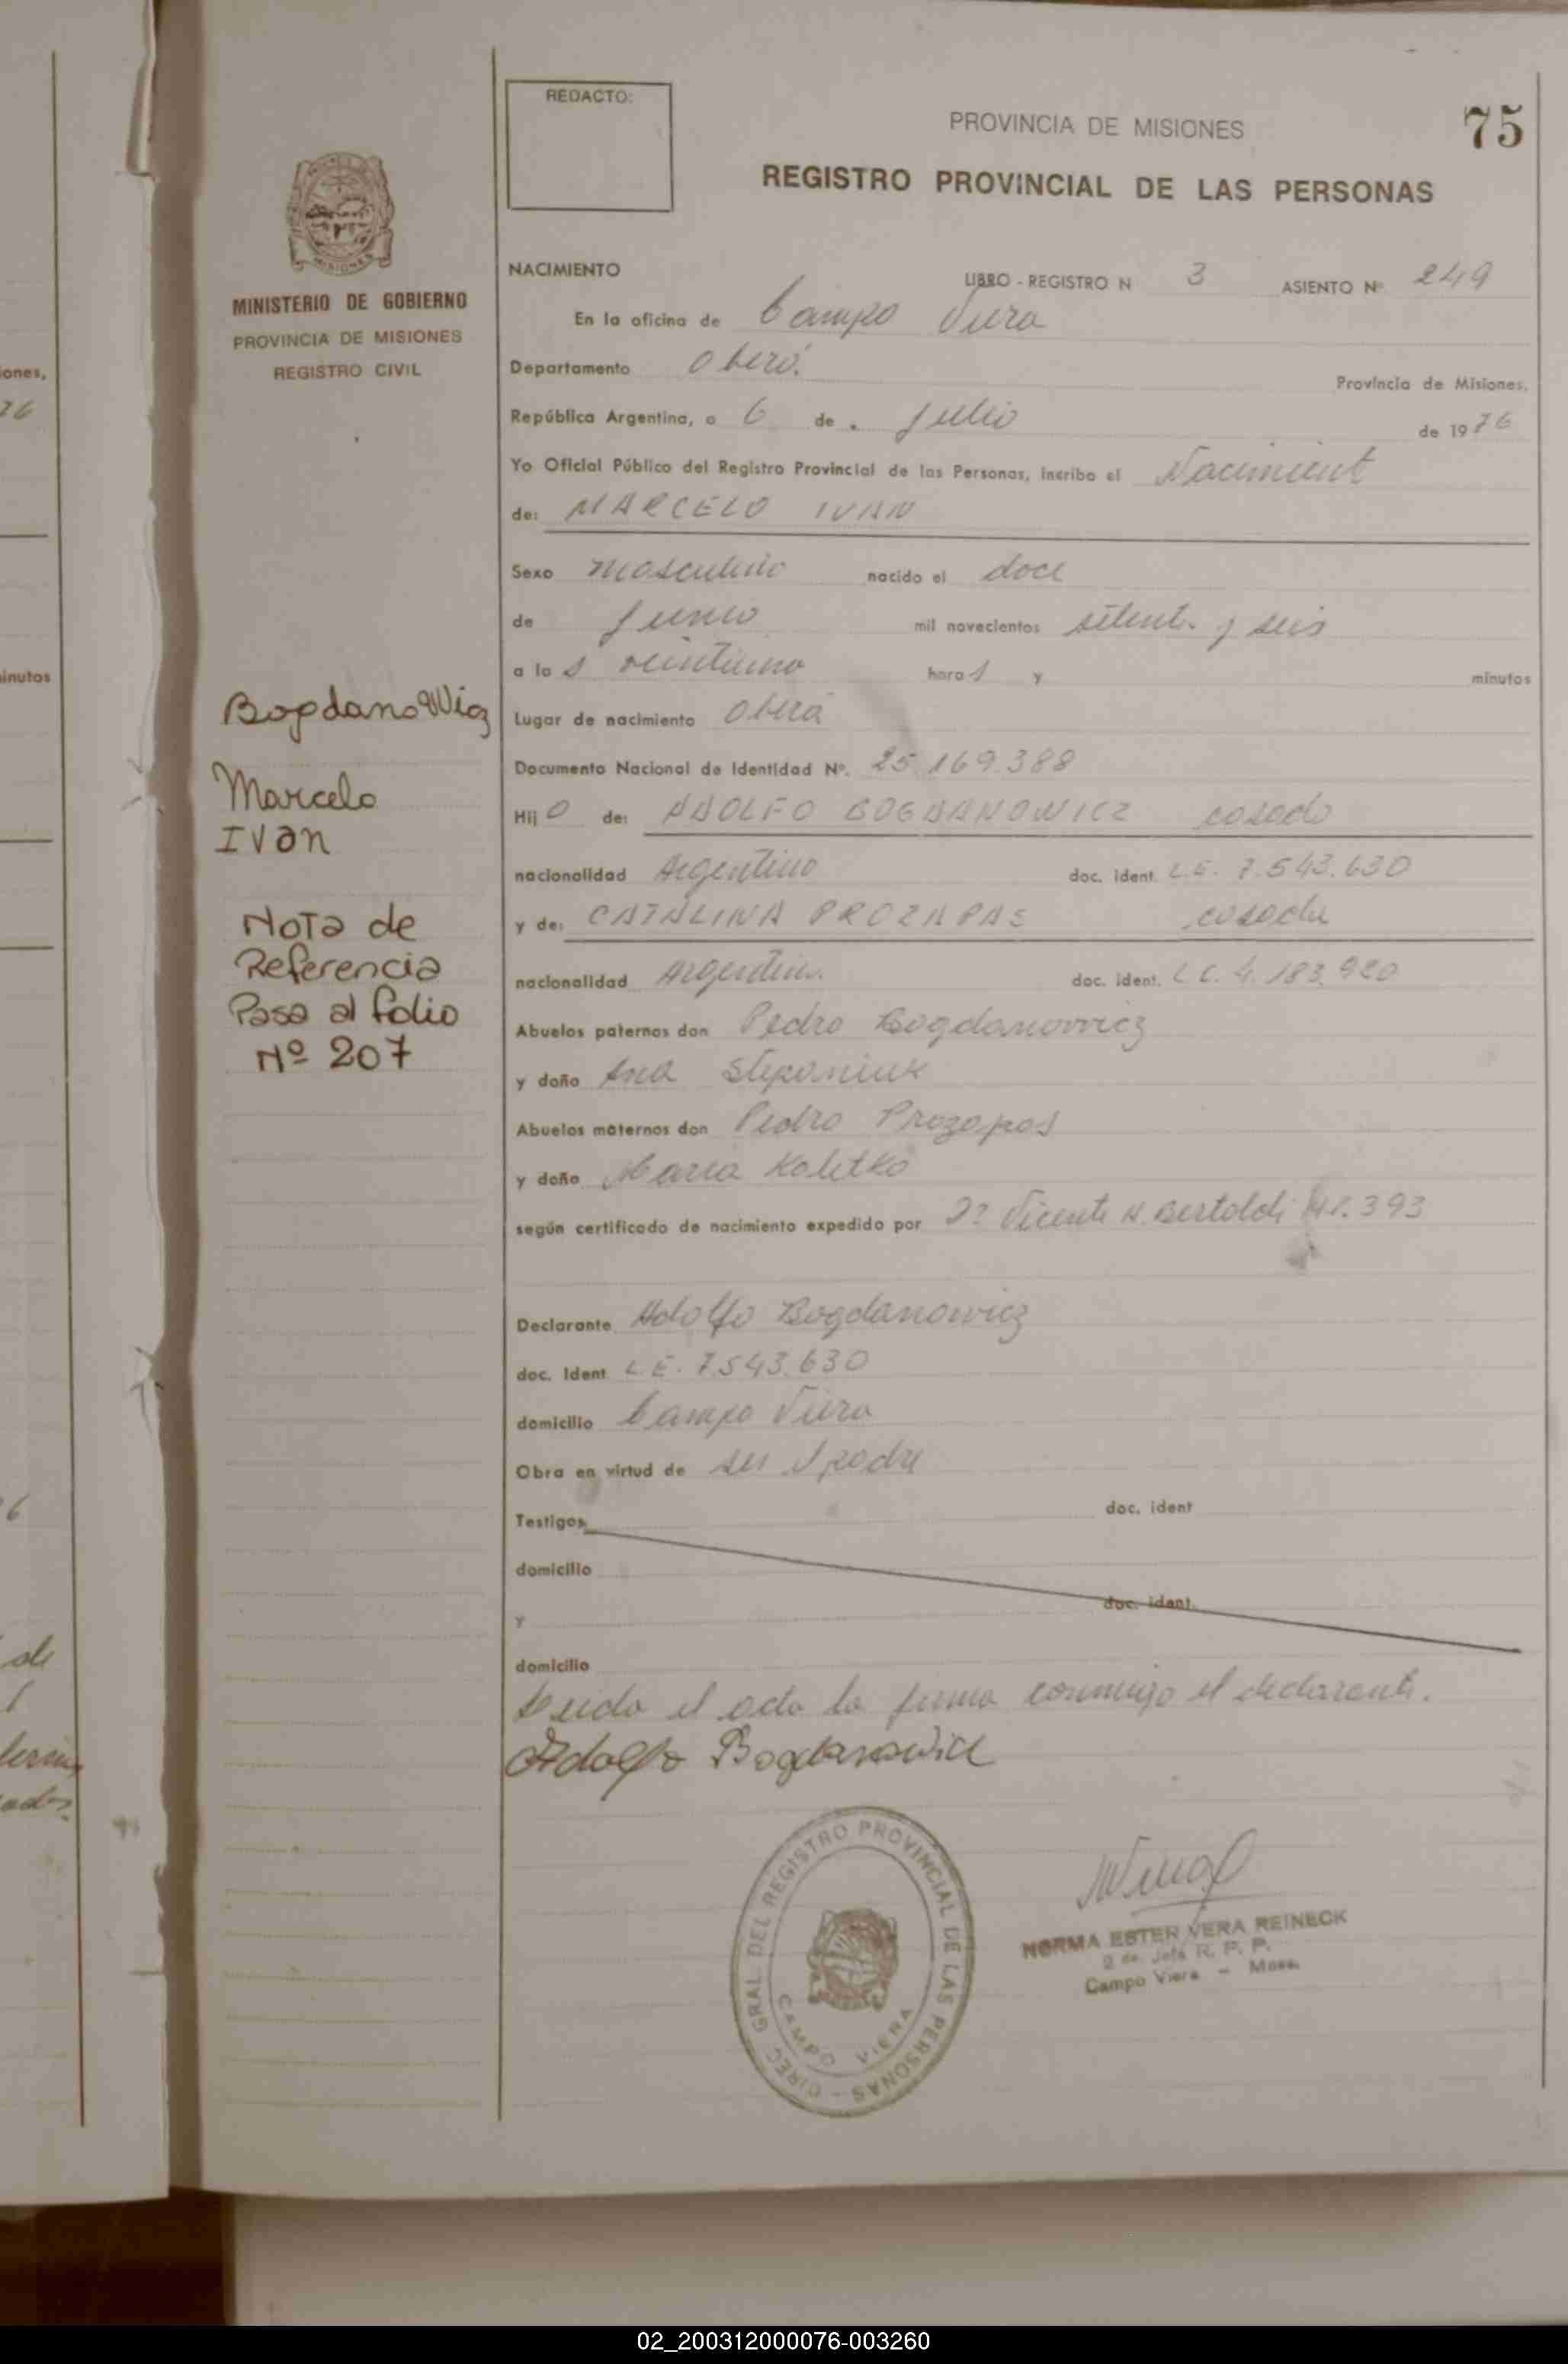 REDACTO:
PROVINCIA DE MISIONES
75
REGISTRO PROVINCIAL DE LAS PERSONAS
MISIONES
MINISTERIO DE GOBIERNO
PROVINCIA DE MISIONES
REGISTRO CIVIL
NACIMIENTO
LIBRO - REGISTRO N 3 ASIENTO Nº 249
En la oficina de Campo Viera
Departamento Oberá.
Provincia de Misiones.
República Argentina, a 6 de . Julio de 1976
Yo Oficial Público del Registro Provincial de las Personas, incribo el Nacimient
de: MARCELO IVAN
Sexo masculino nacido el doce
de Junio mil novecientos setenta y seis
a las veintiuno horas y minutos
Lugar de nacimiento Oberá
Documento Nacional de Identidad Nº. 25.169.388
Hijo de: ADOLFO BOGDANOWICZ casado
nacionalidad Argentino doc. ident. L.E. 7.543.630
y de: CATALINA PROZAPAS casada
nacionalidad Argentina doc. ident. L C. 4.183.920
Abuelos paternos don Pedro Bogdanowicz
y doña Ana Steponiuk
Abuelos maternos don Pedro Prozapas
y doña Maria Koletko
según certificado de nacimiento expedido por Dr Vicente N. Bertoldi 393
Declarante Adolfo Bogdanowicz
doc. Ident L.E. 7.543.630
domicilio Campo Viera
Obra en virtud de ser el padre
Testigos doc. ident
domicilio
y doc. ident.
domicilio
Leida el acta la firma conmigo el declarante.
Adolfo Bogdanowicz
DIREC. GRAL. DEL REGISTRO PROVINCIAL DE LAS PERSONAS -
CAMPO VIERA
NORMA ESTER VERA REINECK
Jefa R. P. P.
Campo Viera - Mnes.
BogdanoWicz
Marcelo
IVan
Nota de
Referencia
Pasa al folio
Nº 207
iones,
76
minutos
6
de
02_200312000076-003260